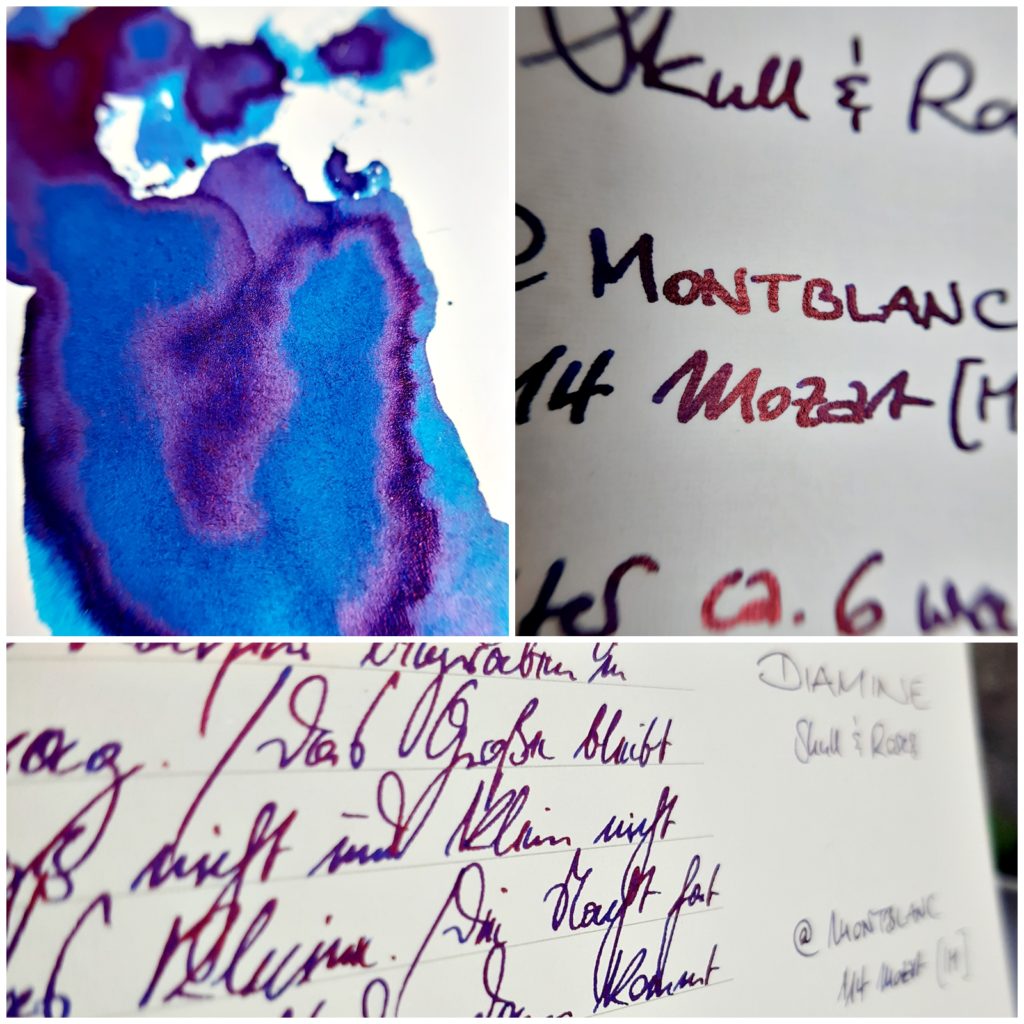 Skull & Ro
@ MONTBLANC
14 Mozart [M
ca. 6
Das Große bleibt
nicht und klein nicht
Kleine. Die Nacht hat
dann kommt
DIAMINE
Skull & Roses
@ MONTBLANC
114 Mozart [M]